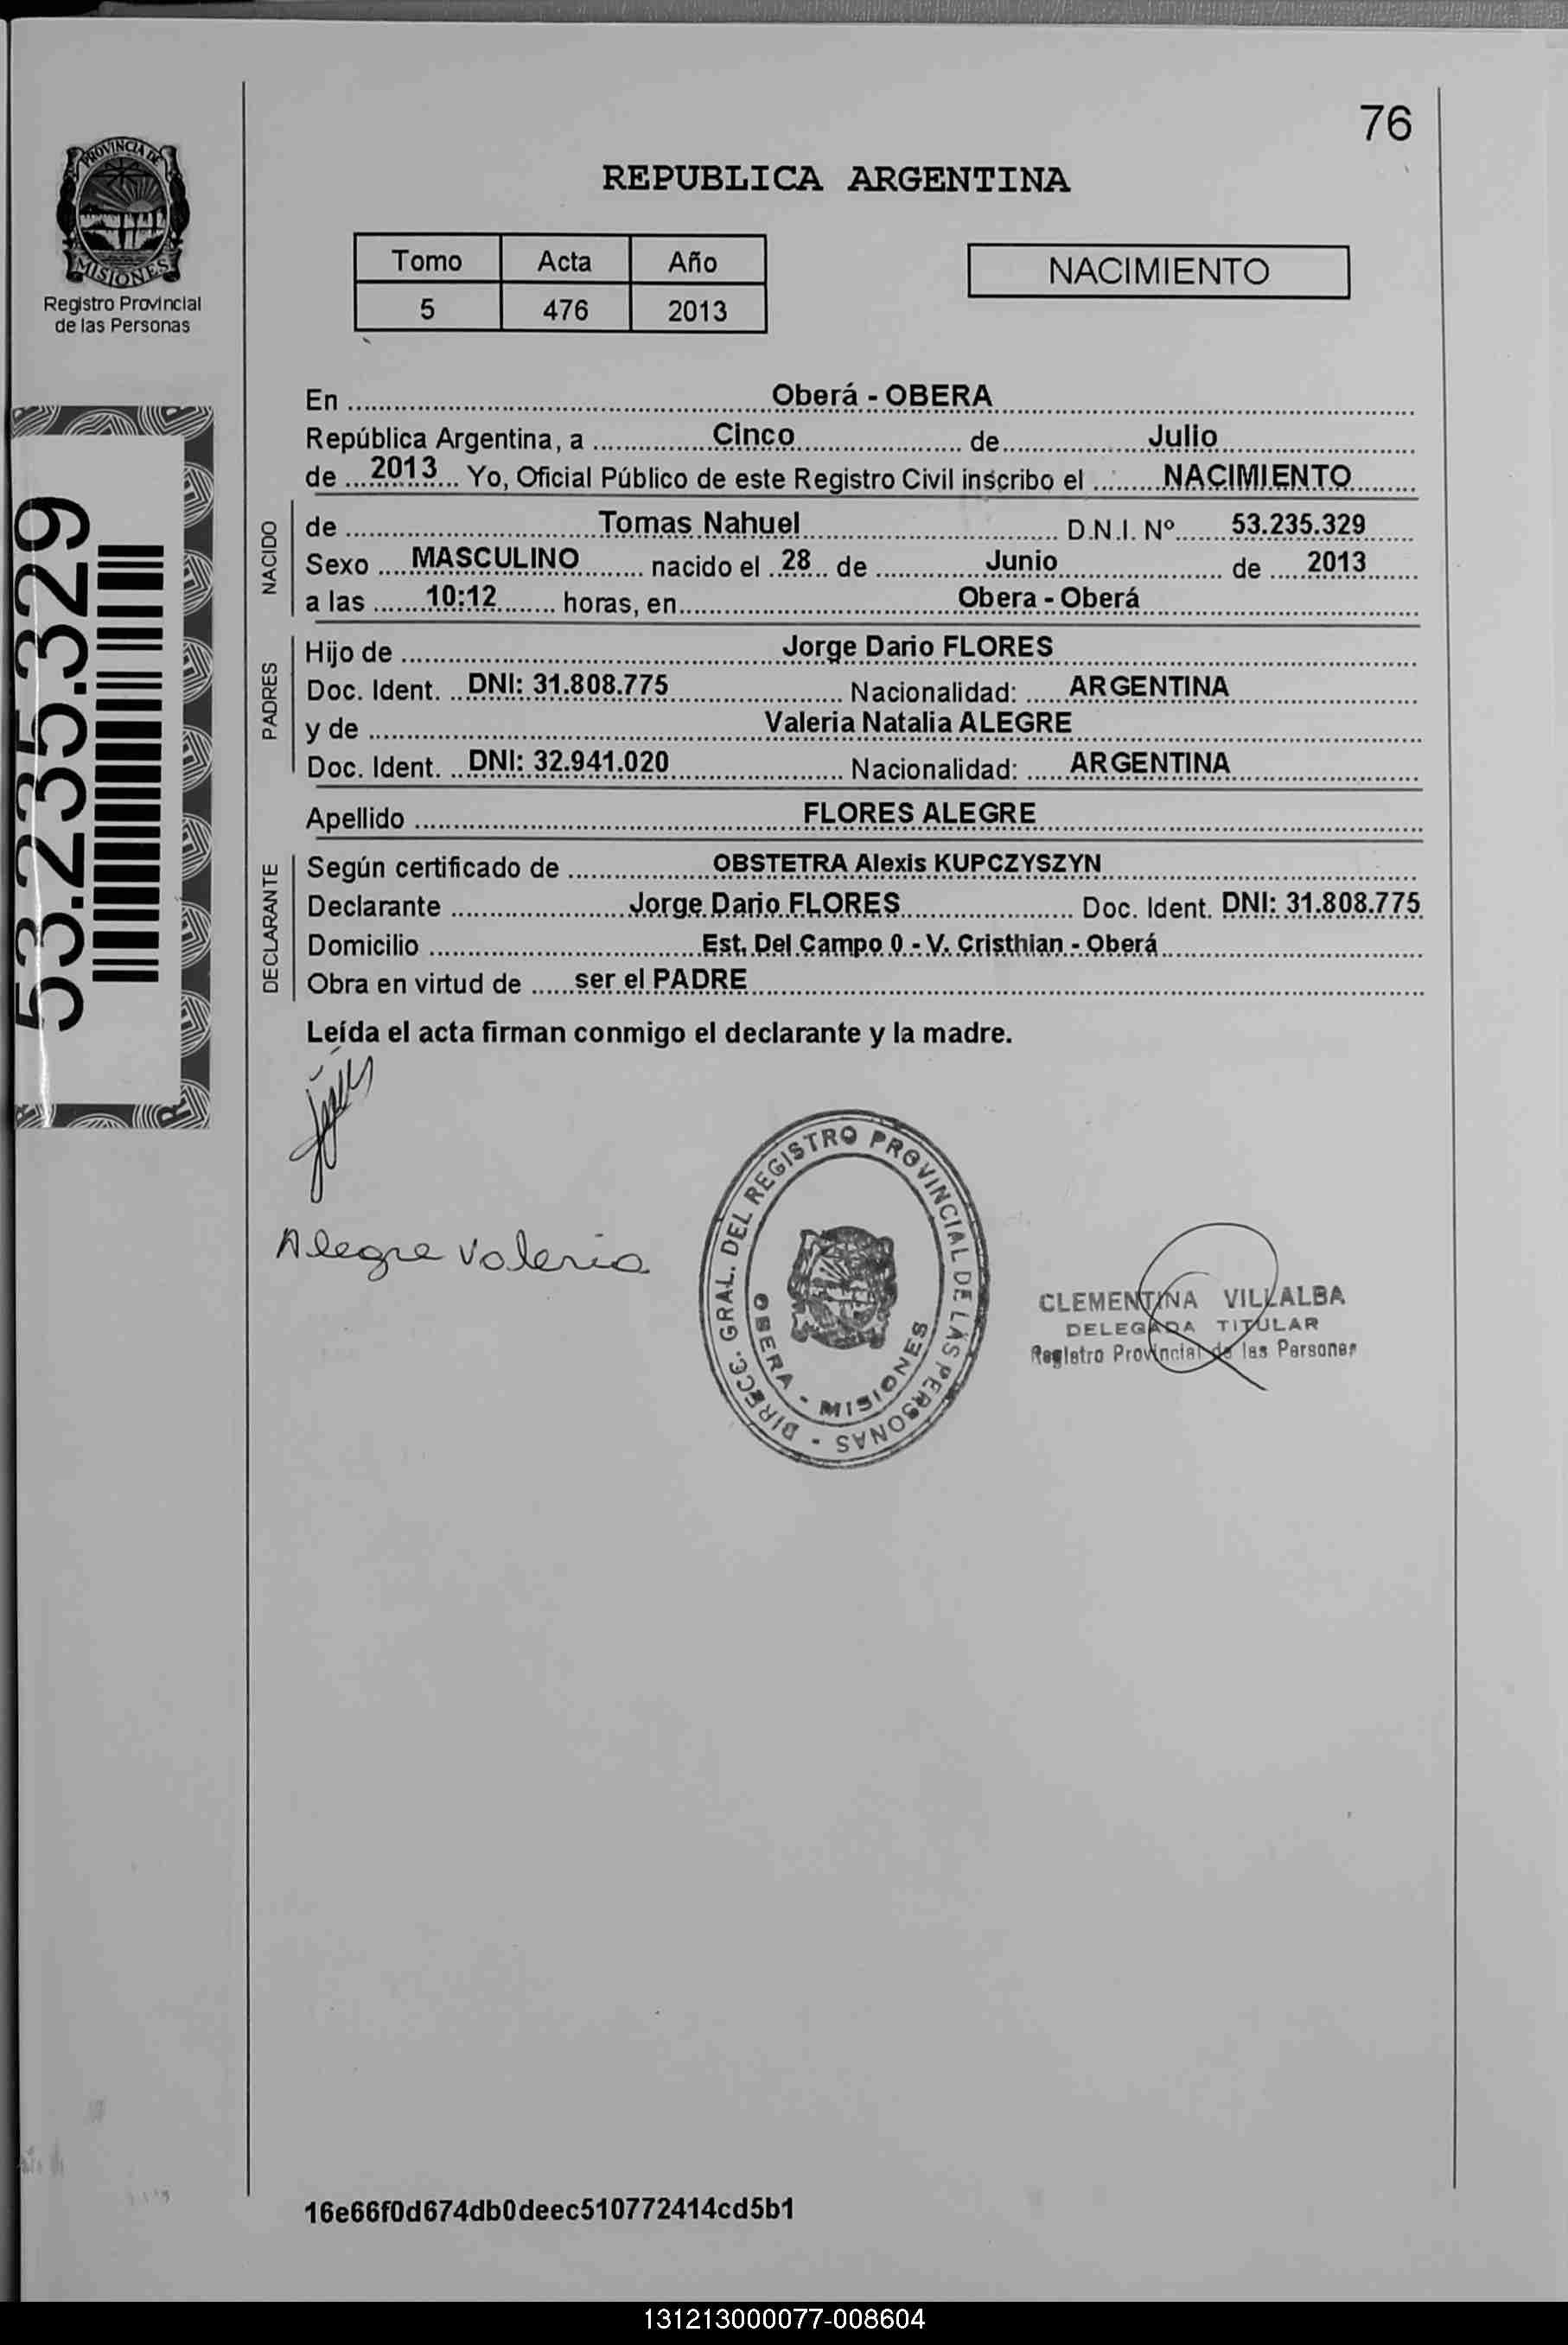 76
PROVINCIA DE
MISIONES
Registro Provincial
de las Personas
REPUBLICA ARGENTINA
Tomo Acta Año
5 476 2013
NACIMIENTO
53.235.329
En Oberá - OBERA
República Argentina, a Cinco de Julio
de 2013 Yo, Oficial Público de este Registro Civil inscribo el NACIMIENTO
NACIDO
de Tomas Nahuel D.N.I. Nº 53.235.329
Sexo MASCULINO nacido el 28 de Junio de 2013
a las 10:12 horas, en Obera - Oberá
PADRES
Hijo de Jorge Dario FLORES
Doc. Ident. DNI: 31.808.775 Nacionalidad: ARGENTINA
y de Valeria Natalia ALEGRE
Doc. Ident. DNI: 32.941.020 Nacionalidad: ARGENTINA
Apellido FLORES ALEGRE
DECLARANTE
Según certificado de OBSTETRA Alexis KUPCZYSZYN
Declarante Jorge Dario FLORES Doc. Ident. DNI: 31.808.775
Domicilio Est. Del Campo 0 - V. Cristhian - Oberá
Obra en virtud de ser el PADRE
Leída el acta firman conmigo el declarante y la madre.
Alegre Valeria
DIRECC. GRAL. DEL REGISTRO PROVINCIAL DE LAS PERSONAS -
OBERA - MISIONES
CLEMENTINA VILLALBA
DELEGADA TITULAR
Registro Provincial de las Personas
16e66f0d674db0deec510772414cd5b1
131213000077-008604